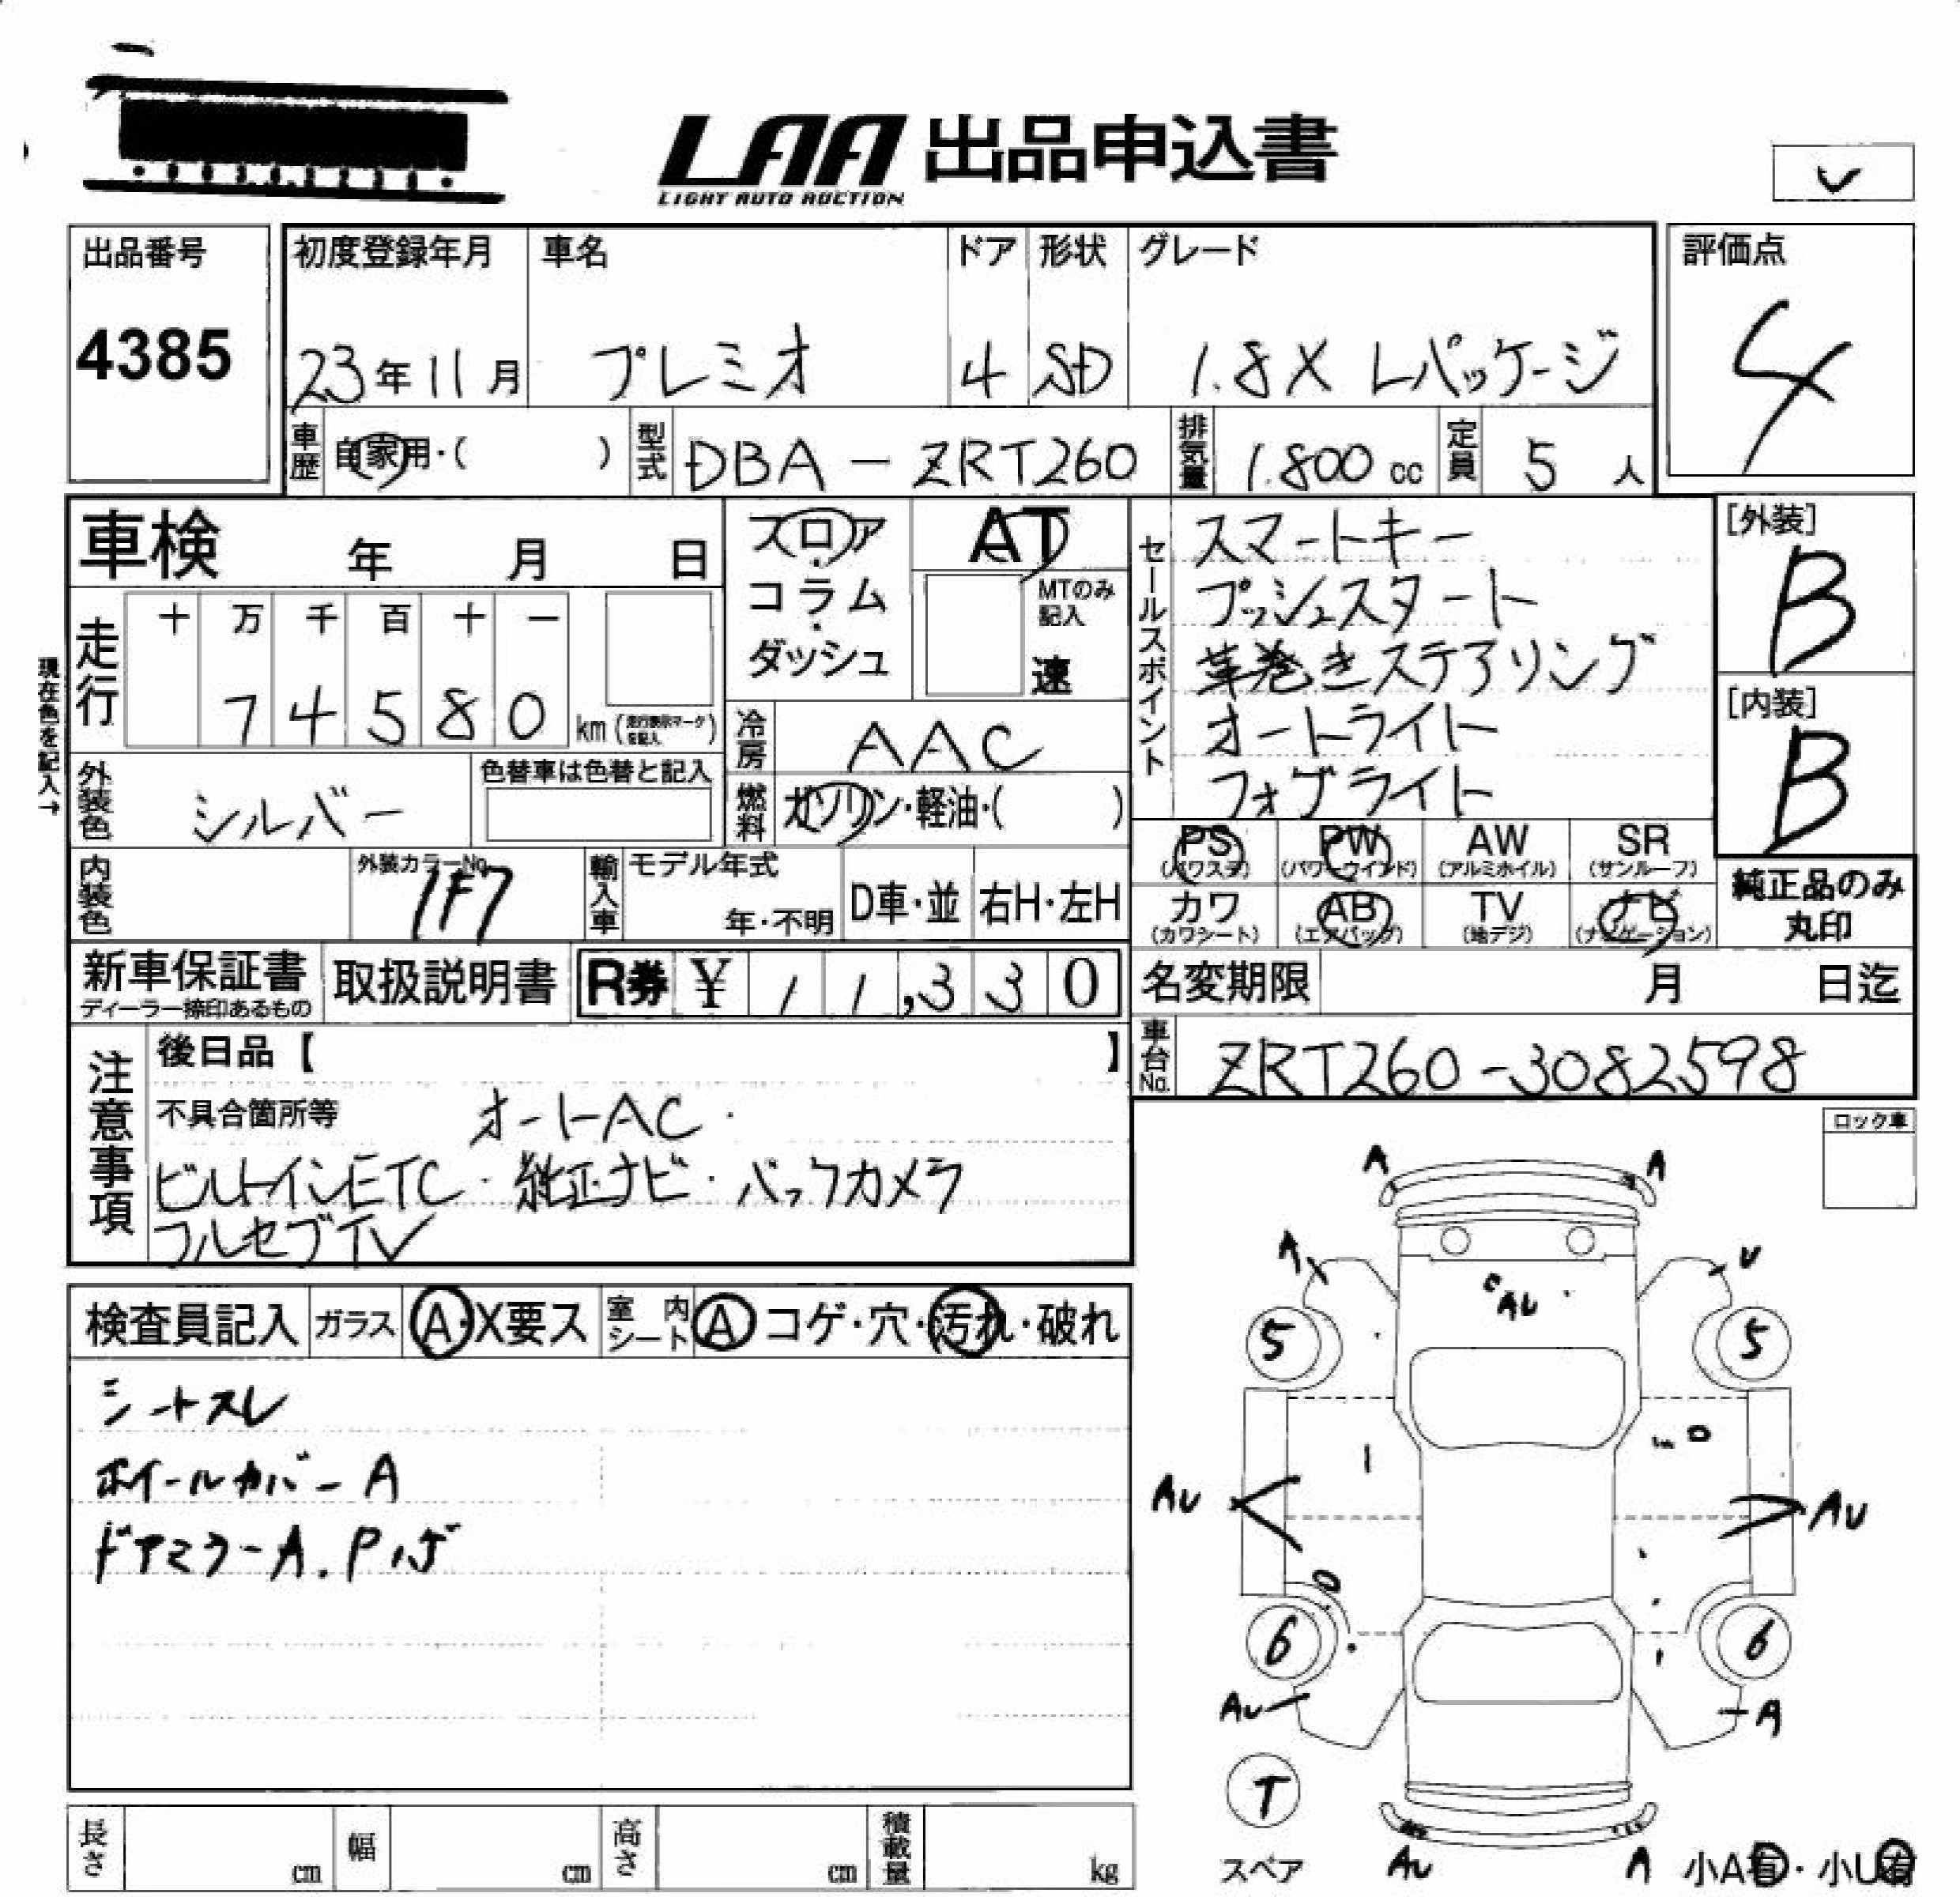 LAA 出品申込書
LIGHT AUTO AUCTION
出品番号
4385
初度登録年月
23年11月
車名
プレミオ
ドア
4
形状
SD
グレード
1.8X Lパッケージ
評価点
4
車歴
自家用・( )
型式
DBA-ZRT260
排気量
1.800 cc
定員
5 人
車検 年 月 日
フロア
・
コラム
・
ダッシュ
AT
MTのみ
記入
速
セールスポイント
スマートキー
プッシュスタート
革巻きステアリング
オートライト
フォブライト
[外装]
B
[内装]
B
現在色を記入→
走行
十 万 千 百 十 一
7 4 5 8 0 km (走行表示マークを記入)
冷房
AAC
外装色
シルバー
色替車は色替と記入
燃料
ガソリン・軽油・( )
PS
(パワステ)
PW
(パワーウインド)
AW
(アルミホイル)
SR
(サンルーフ)
内装色
外装カラーNo.
1F7
輸入車
モデル年式
年・不明
D車・並
右H・左H
カワ
(カワシート)
AB
(エアバッグ)
TV
(地デジ)
ナビ
(ナビゲーション)
純正品のみ
丸印
新車保証書
ディーラー捺印あるもの
取扱説明書
R券 ¥ 11,330
名変期限 月 日迄
車台No.
ZRT260-3082598
注意事項
後日品【 】
不具合箇所等 オートAC・
ビルトインETC・純正ナビ・バックカメラ
フルセグTV
ロック車
検査員記入
ガラス
A・X要ス
室内シート
A コゲ・穴・汚れ・破れ
シートスレ
ホイールカバーA
ドアミラーA.Pハゲ
A A
A U
AU
5 5
AU AU
6 6
AU A
T
スペア
AU A
小A有・小U有
長さ cm
幅 cm
高さ cm
積載量 kg